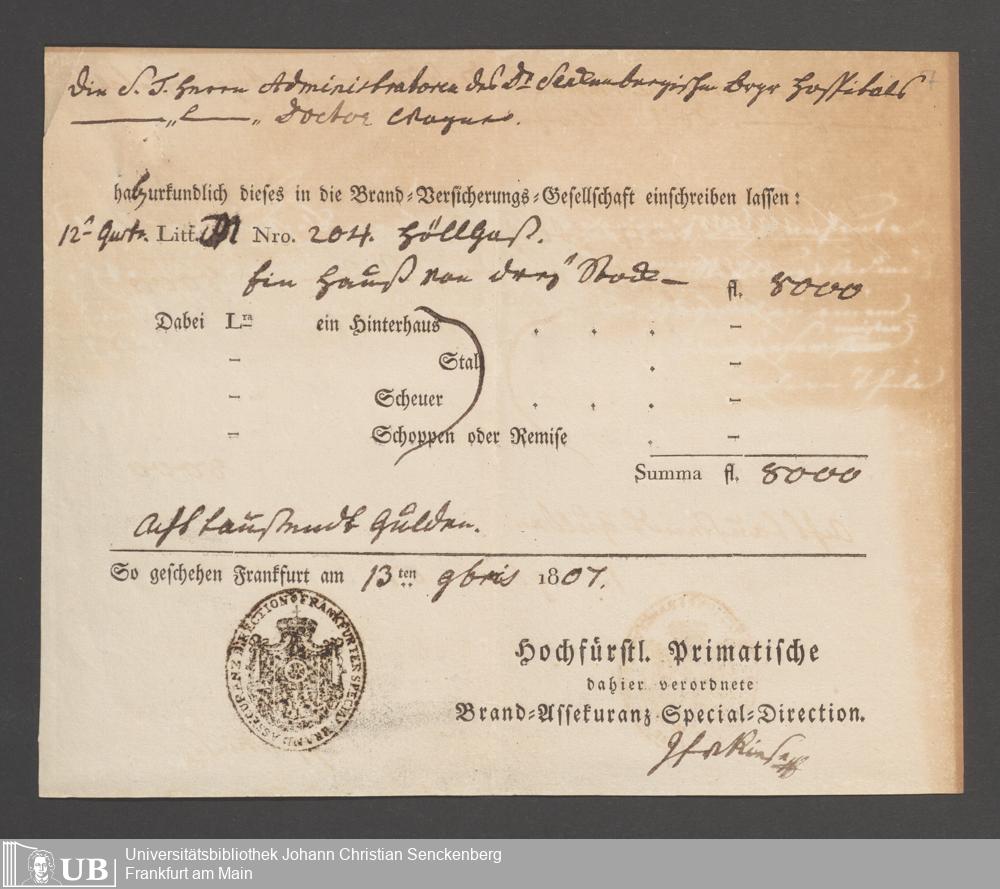 Die S. T. Herrn Administratoren des Dr Senkenbergischen Brgr Hospitals
Doctor Wagner.
hab urkundlich dieses in die Brand-Versicherungs-Gesellschaft einschreiben lassen:
12t Qurtr. Litt. M Nro. 204. Höllgaß.
Ein Hauß von drey Stock – fl. 8000
Dabei Lra ein Hinterhaus . . . –
– Stall . –
– Scheuer . . . –
– Schoppen oder Remise . –
Summa fl. 8000
Acht taußendt Gulden.
So geschehen Frankfurt am 13ten 9bris 1807.
FRANKFURTER SPECIAL BRAND ASSECURANZ DIRECTION
Hochfürstl. Primatische
dahier verordnete
Brand-Assekuranz Special-Direction.
UB
Universitätsbibliothek Johann Christian Senckenberg
Frankfurt am Main